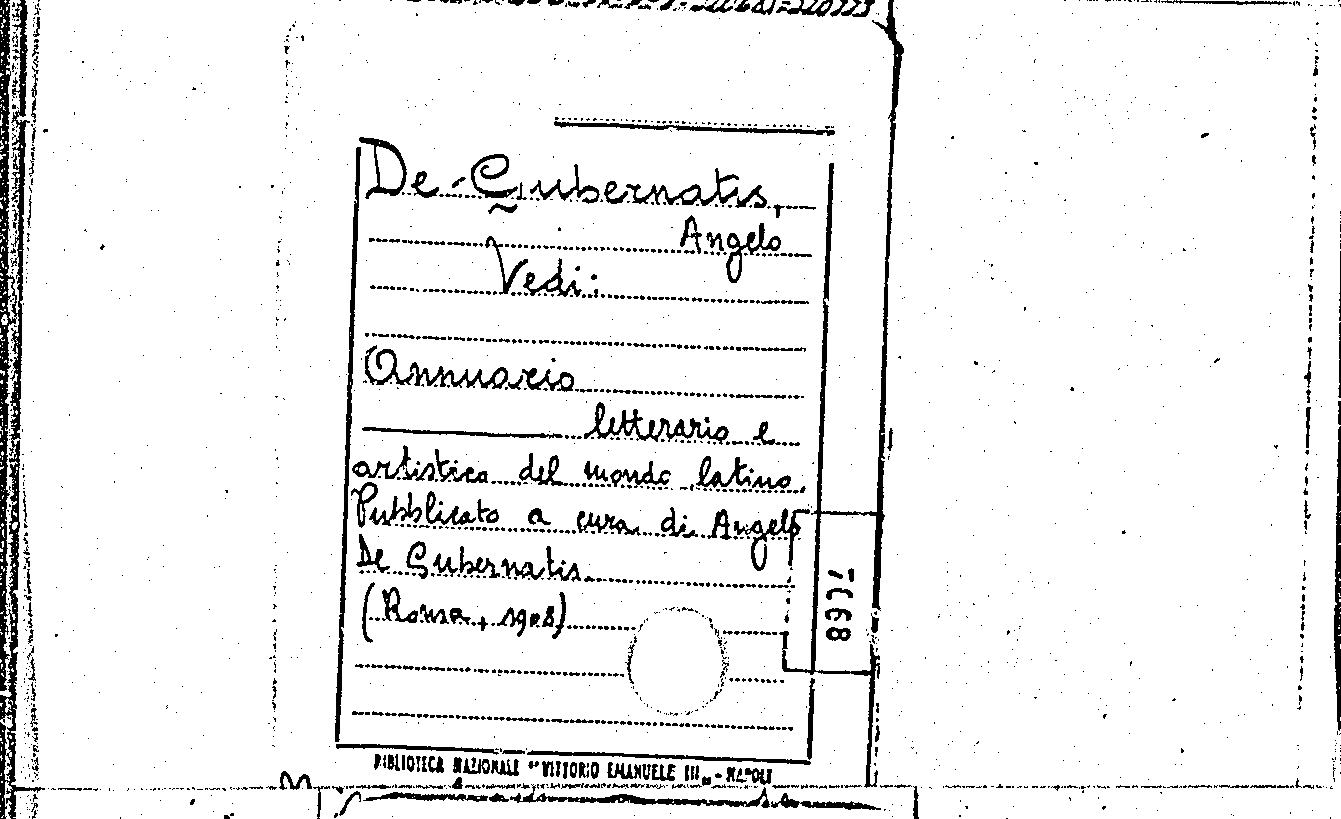 De-Gubernatis,
Angelo
Vedi:
Annuario
letterario e
artistico del mondo latino.
Pubblicato a cura di Angelo
De Gubernatis.
(Roma, 1908)
7068
BIBLIOTECA NAZIONALE "VITTORIO EMANUELE III„ - NAPOLI